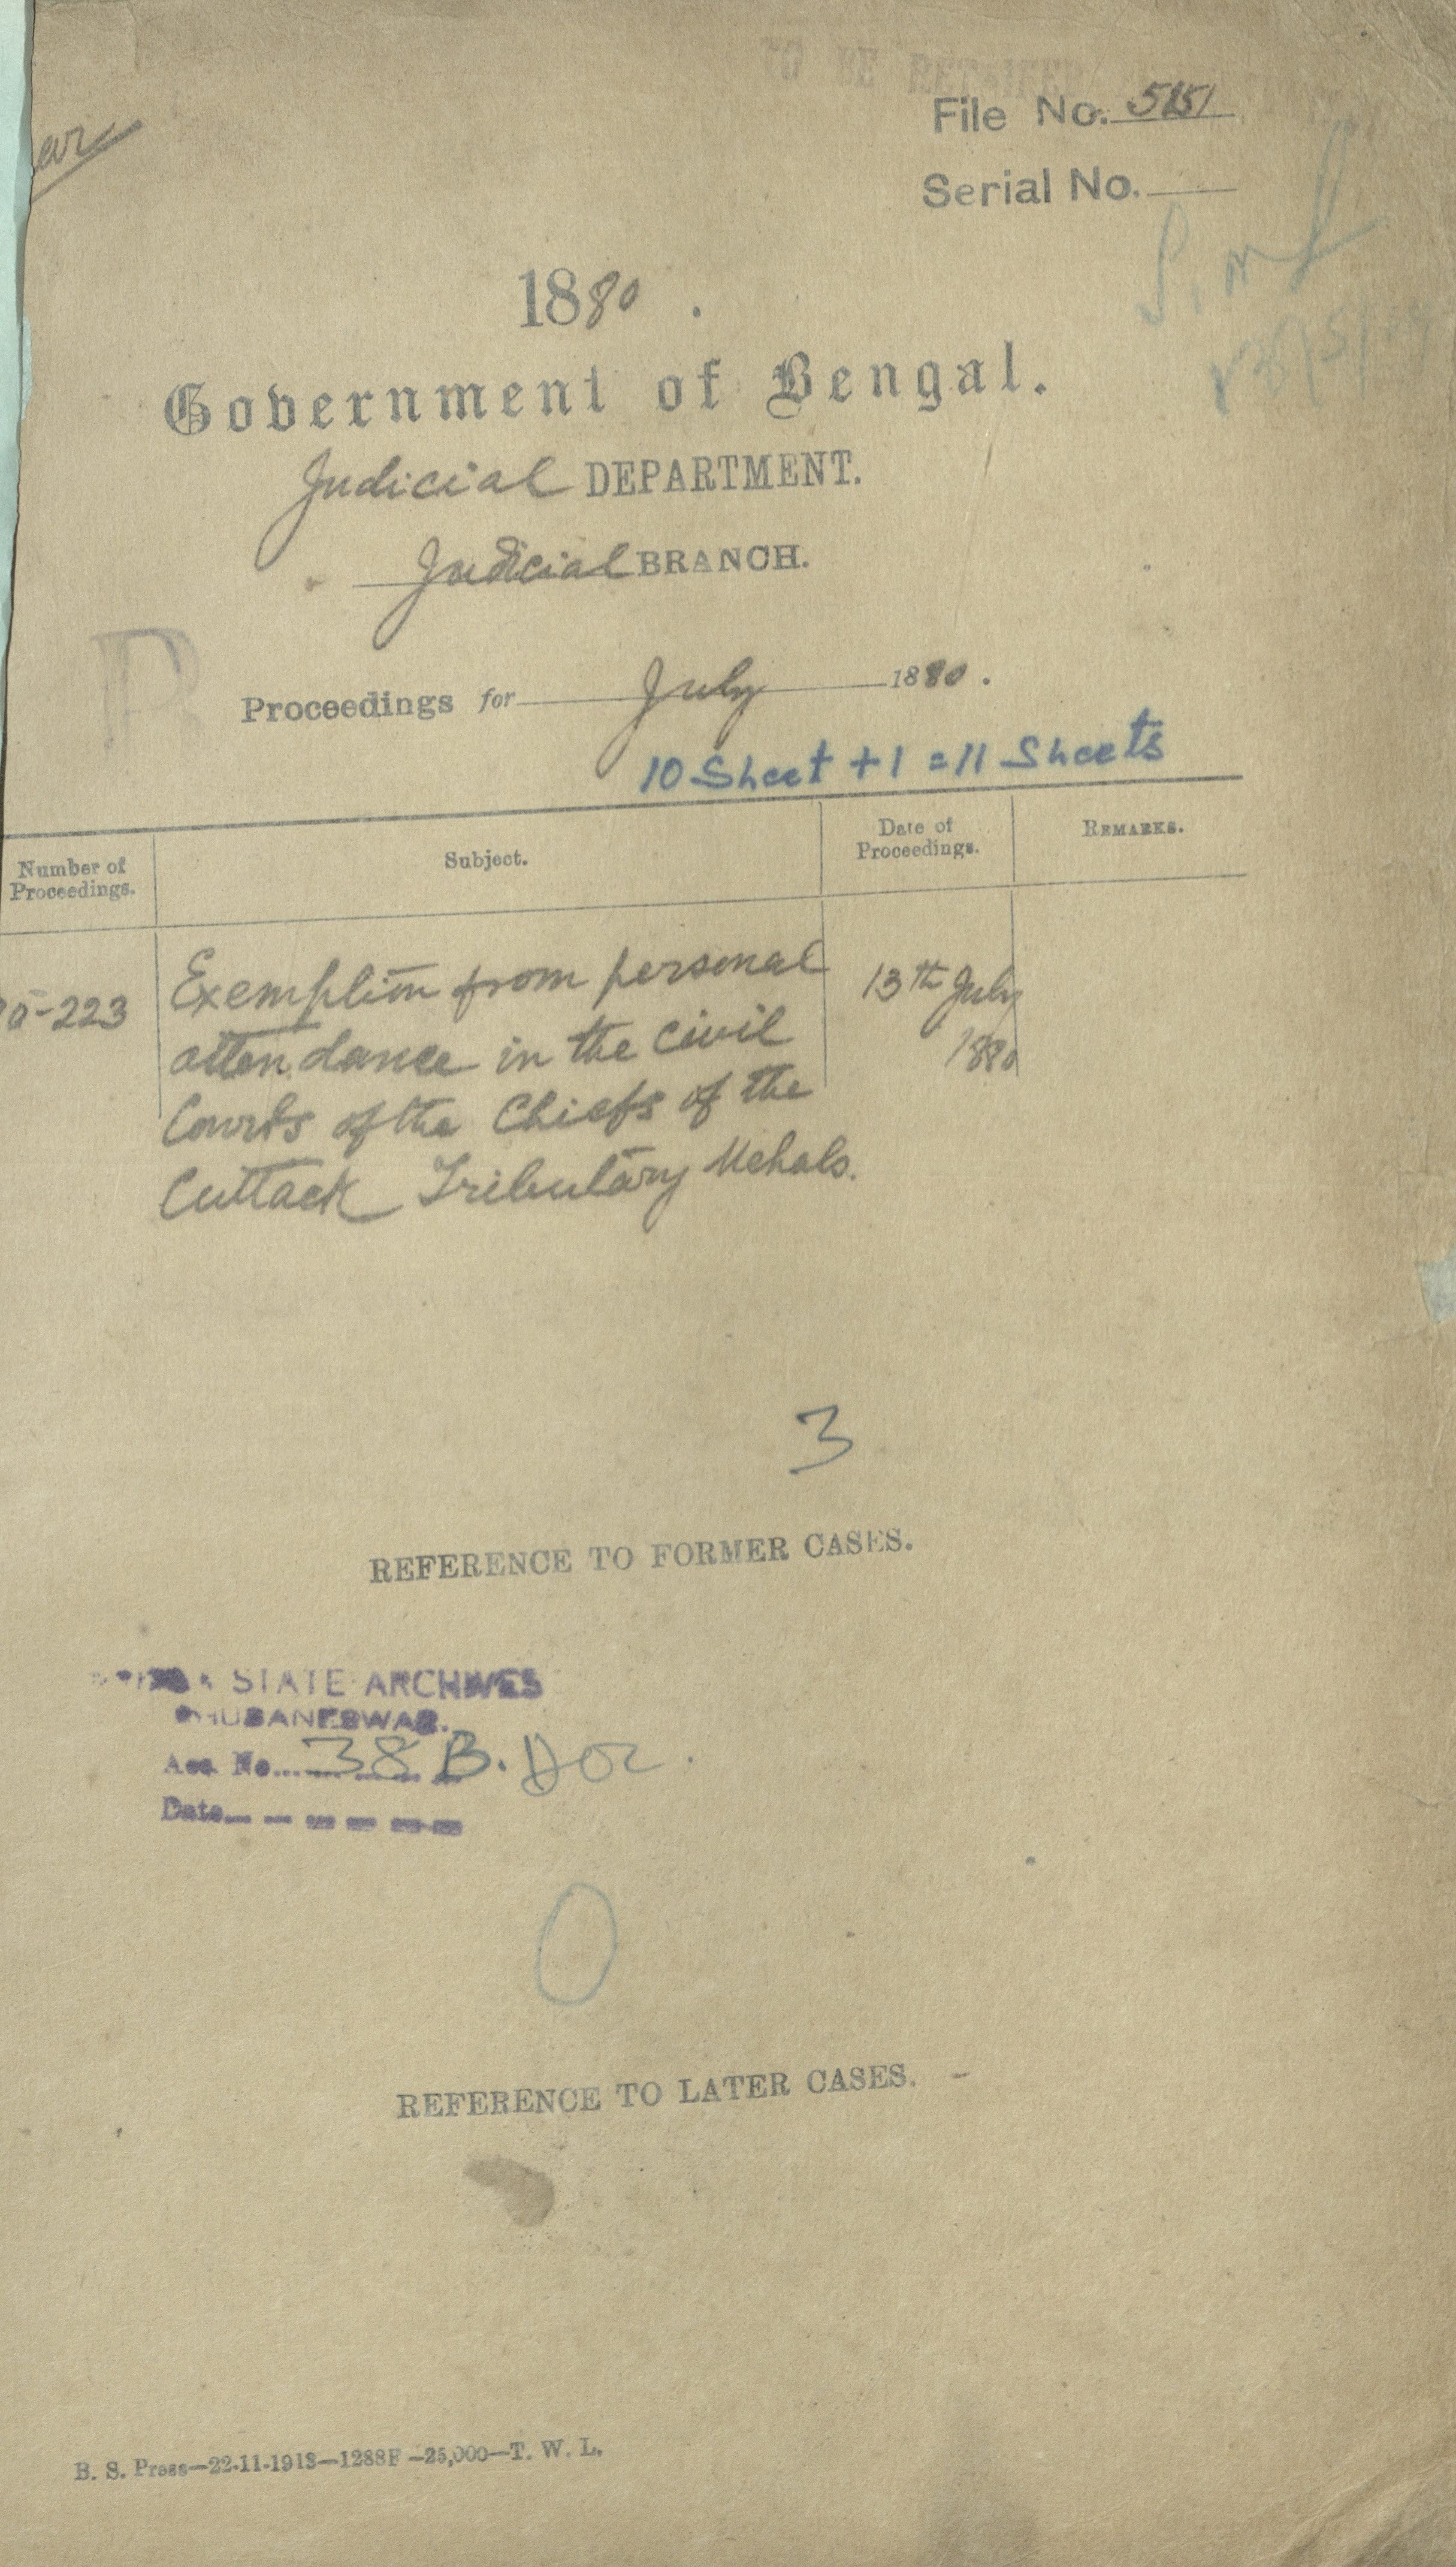 TO BE RETAINED
File No. 5151
Serial No.
1880.
Government of Bengal.
Judicial DEPARTMENT.
Judicial BRANCH.
Proceedings for July 1880.
10 Sheet + 1 = 11 Sheets
Number of Proceedings.
Subject.
Date of Proceedings.
REMARKS.
-223
Exemption from personal
attendance in the Civil
Courts of the Chiefs of the
Cuttack Tributary Mehals.
13th July
1880
3
REFERENCE TO FORMER CASES.
STATE ARCHIVES
BHUBANESWAR.
Acc. No. 38 B. Doc.
Date
0
REFERENCE TO LATER CASES.
B. S. Press—22-11-1913—1288F—25,000—T. W. L.